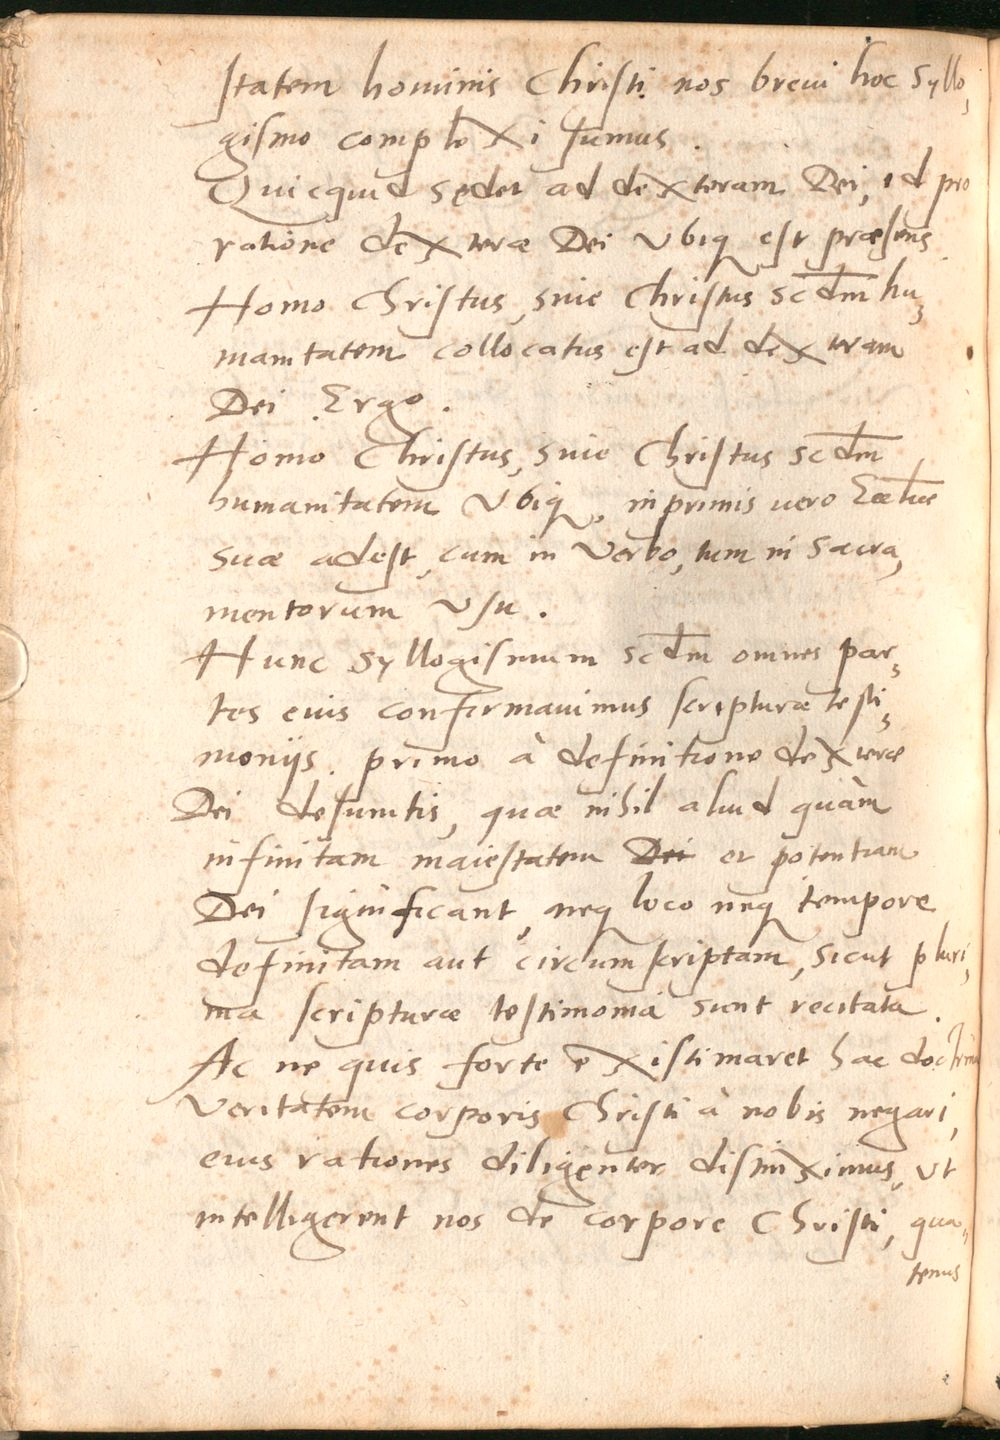 statem hominis Christi nos breui hoc Syllo,
gismo complexi sumus.
Quicquid sedet ad dexteram Dei, id pro
ratione dexteræ Dei Vbiq est præsens.
Homo Christus, siue Christus scdm hu,
manitatem collocatus est ad dexteram
Dei. Ergo.
Homo Christus, siue Christus scdm
humanitatem Vbiq, inprimis uero Eccliæ
suæ adest, cum in Verbo, tum in Sacra,
mentorum Vsu.
Hunc Syllogismum scdm omnes par,
tes eius confirmauimus scripturæ testi,
monijs. primo à definitione dexteræ
Dei desumtis, quæ nihil aliud quàm
infinitam maiestatem Dei et potentiam
Dei significant, neq loco neq tempore
definitam aut circumscriptam, sicut pluri,
ma scripturæ testimonia sunt recitata.
Ac ne quis forte existimaret hac doctrina
Veritatem corporis Christi à nobis negari,
eius rationes diligenter distinximus, Vt
intelligerent nos de corpore Christi, qua,
tenus